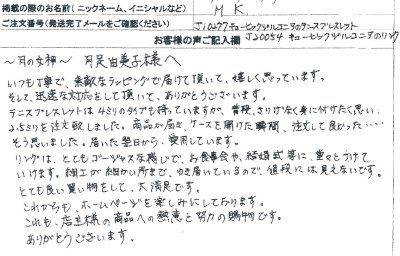 掲載の際のお名前(ニックネーム、イニシャルなど)
M K.
ご注文番号(発送完了メールをご確認ください)
J10277キュービックジルコニアのテニスブレスレット
J20054 キュービックジルコニアのリング
お客様の声ご記入欄
～月の女神～ 月尾由美子様へ
いつも丁寧で、素敵なラッピングで届けて頂いて、嬉しく思っています。
そして、迅速な対応をして頂いて、ありがとうございます。
テニスブレスレットは4ミリのタイプも持っていますが、普段、さりげなく身に付けたく思い、
2.5ミリを注文致しました。商品が届き、ケースを開けた瞬間、注文して良かった……
そう思いました。届いた翌日から、愛用しています。
リングは、とてもゴージャスな感じで、お食事会や、結婚式等に、堂々とつけて
いけます。細工が細かい所まで、ゆき届いているので、値段には見えないです。
とても良い買い物をして、大満足です。
これからも、ホームページを楽しみにしております。
これも、店主様の商品への熱意と努力の賜物です。
ありがとうございます。